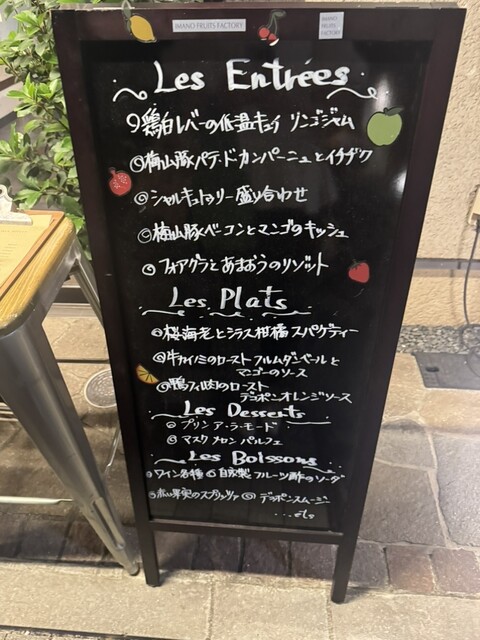 IMANO FRUITS FACTORY
IMANO
FRUITS
FACTORY
Les Entrées
鶏白レバーの低温キュイ リンゴジャム
梅山豚パテ・ド・カンパーニュとイチヂク
シャルキュトリー盛り合わせ
梅山豚ベーコンとマンゴのキッシュ
フォアグラとあまおうのリゾット
Les Plats
桜海老とシラス柑橘スパゲティー
牛カイノミのロースト フルムダンベールと
マンゴーのソース
鴨フィレ肉のロースト
デコポンオレンジソース
Les Desserts
プリン ア・ラ・モード
マスクメロンパルフェ
Les Boissons
ワイン各種 自家製フルーツ酢のソーダ
赤い果実のスプリッツァ デコポンスムージー
...etc